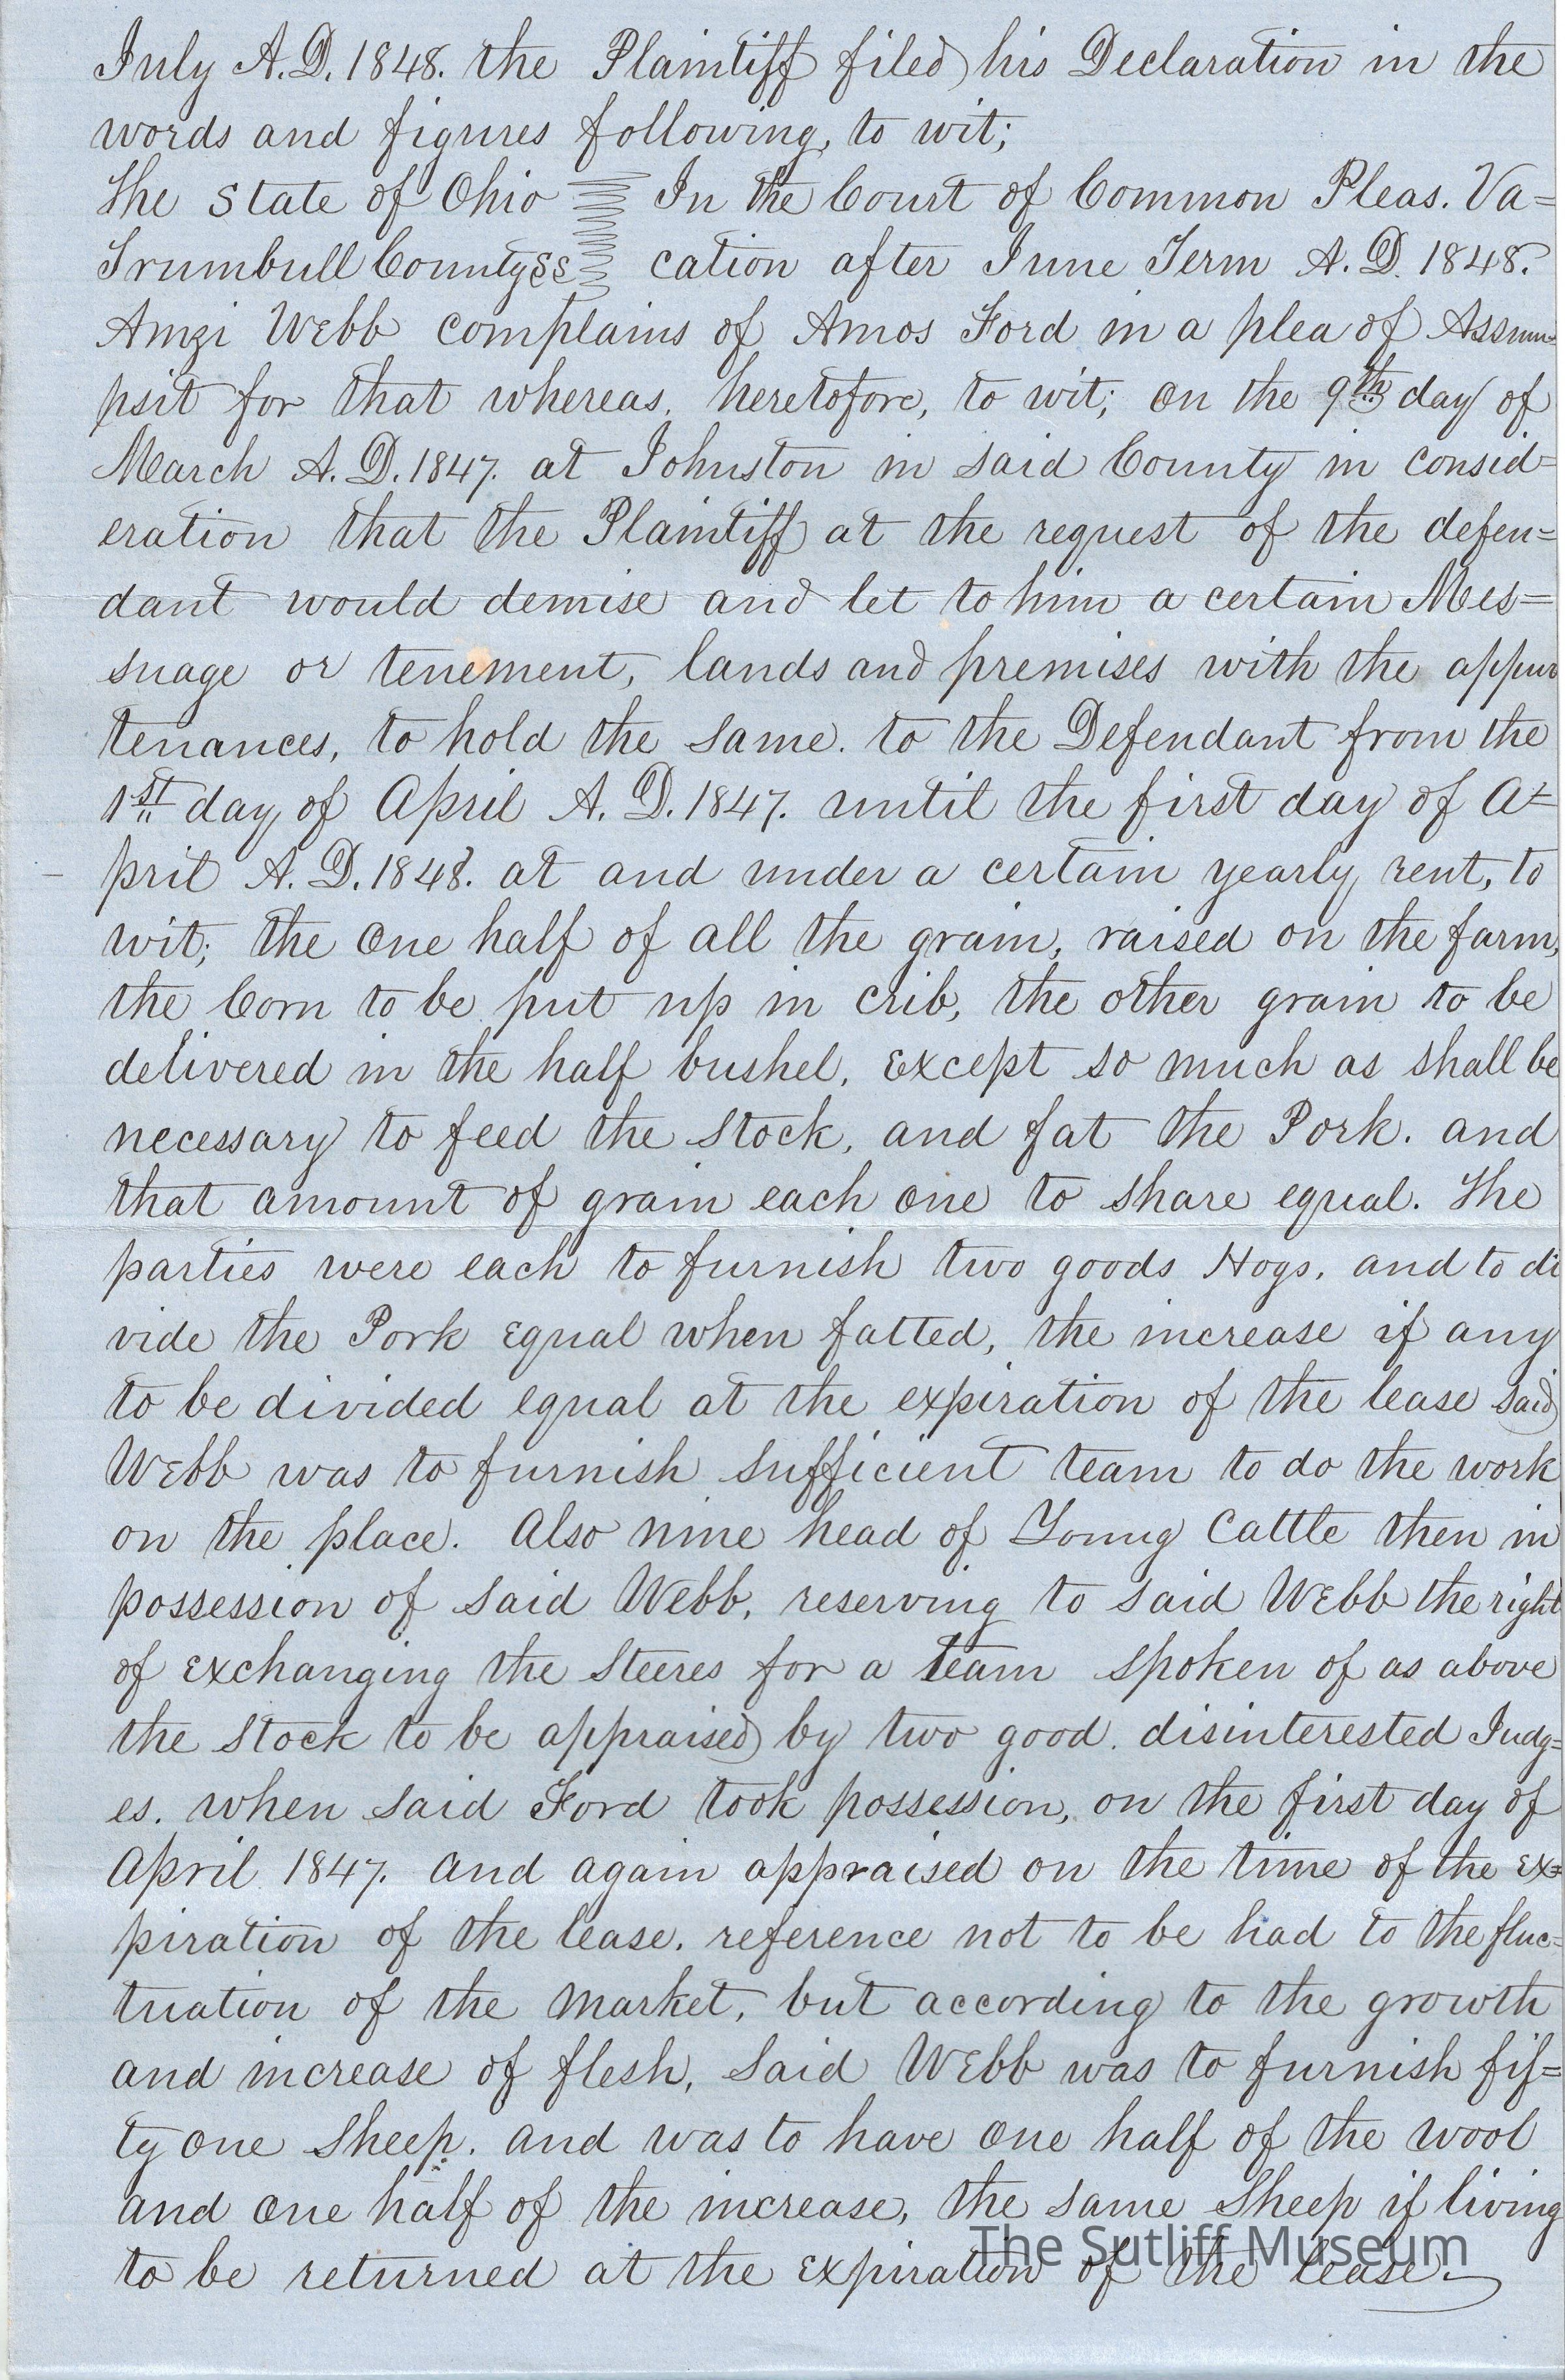 July A.D. 1848. the Plaintiff filed his Declaration in the
words and figures following, to wit;
The State of Ohio In the Court of Common Pleas. Va=
Trumbull County SS cation after June Term A.D. 1848.
Amzi Webb complains of Amos Ford in a plea of Assum=
psit for that whereas, heretofore, to wit; on the 9th day of
March A.D. 1847. at Johnston in said County in consid=
eration that the Plaintiff at the request of the defen=
dant would demise and let to him a certain Mes=
suage or tenement, lands and premises with the appur
tenances, to hold the same. to the Defendant from the
1st day of April A.D. 1847. until the first day of A=
pril A.D. 1848. at and under a certain yearly rent, to
wit; the one half of all the grain, raised on the farm,
the Corn to be put up in crib, the other grain to be
delivered in the half bushel, except so much as shall be
necessary to feed the stock, and fat the Pork. and
that amount of grain each one to share equal. The
parties were each to furnish two goods Hogs, and to di
vide the Pork equal when fatted, the increase if any
to be divided equal at the expiration of the lease said
Webb was to furnish sufficient team to do the work
on the place. Also nine head of Young Cattle then in
possession of said Webb, reserving to said Webb the right
of exchanging the Steeres for a team spoken of as above
the stock to be appraised by two good. disinterested Judg=
es. when said Ford took possession, on the first day of
April 1847. and again appraised on the time of the ex=
piration of the lease. reference not to be had to the fluc=
tuation of the market, but according to the growth
and increase of flesh, said Webb was to furnish fif=
ty one Sheep. and was to have one half of the wool
and one half of the increase, the same Sheep if living
to be returned at the expiration of the lease.
The Sutliff Museum